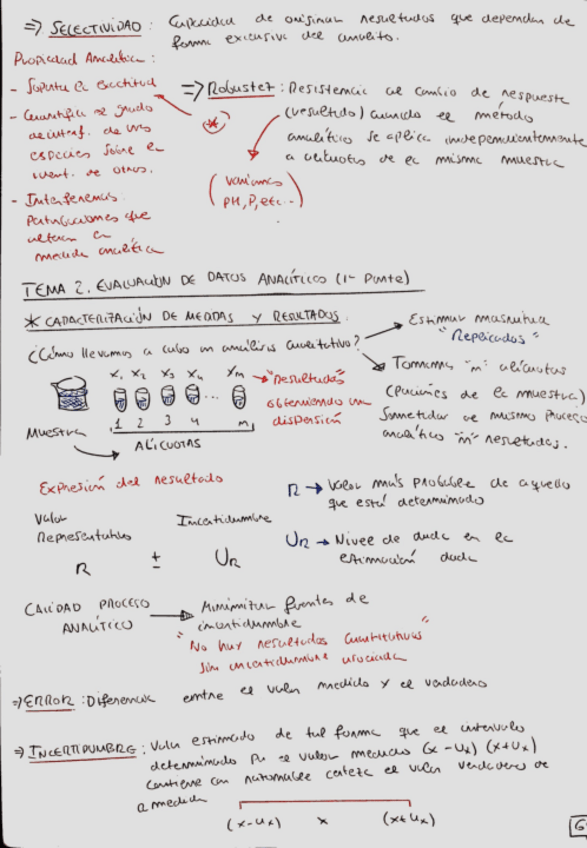 ⇒ SELECTIVIDAD: Capacidad de originar resultados que dependan de
forma exclusiva del analito.
Propiedad Analítica:
- Soporta la exactitud
- Cuantifica el grado
de interf. de unas
especies sobre la
ident. de otros.
- Interferencias:
Perturbaciones que
alteran la
medida analítica
⇒ Robustez: Resistencia al cambio de respuesta
(resultado) cuando el método
analítico se aplica independientemente
a alícuotas de la misma muestra
(*)
(variamos
pH, P, etc...)
TEMA 2. EVALUACIÓN DE DATOS ANALÍTICOS (1ª Parte)
* CARACTERIZACIÓN DE MEDIDAS Y RESULTADOS.
¿Cómo llevamos a cabo un análisis cuantitativo?
Estimar magnitud
"Replicados"
Tomamos "n" alícuotas
(porciones de la muestra)
Sometidas al mismo proceso
analítico "n" resultados.
X1 X2 X3 X4 Xn → "Resultados"
obteniendo una
dispersión
1 2 3 4 ... n
Muestra
ALÍCUOTAS
Expresión del resultado
Valor
Representativo
Incertidumbre
R ± UR
R → Valor más probable de aquello
que está determinado
UR → Nivel de duda en la
estimación dada
CALIDAD PROCESO
ANALÍTICO
Minimizar fuentes de
incertidumbre
"No hay resultados cuantitativos"
sin incertidumbre asociada
⇒ ERROR: Diferencia entre el valor medido y el verdadero
⇒ INCERTIDUMBRE: Valor estimado de tal forma que el intervalo
determinado por el valor medido (x - Ux) (x+Ux)
contiene con razonable certeza el valor verdadero de
a medida
(x-Ux) x (x+Ux)
6